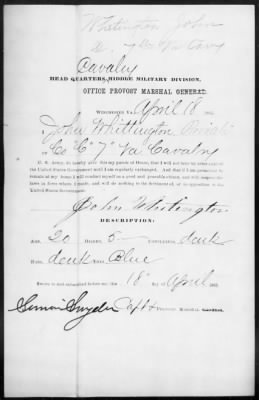 Whitington John
7 Va Cavy
Cavalry
HEAD QUARTERS, MIDDLE MILITARY DIVISION,
OFFICE PROVOST MARSHAL GENERAL.
WINCHESTER VA. April 18, 186
I John Whittington Private
Co "C" 7" Va Cavalry
C. S. Army, do hereby give this my parole of Honor, that I will not bear the
United States Government until I am regularly exchanged. And that if I am permitted to
remain at my home I will conduct myself as a good and peaceable citizen, and will respect the
laws in force where I reside, and will do nothing to the detriment of, or in opposition to the
United States Government.
John Whitington
DESCRIPTION:
AGE, 20 HEIGHT, 5 COMPLEXION, dark
HAIR, dark EYES Blue
Sworn to and subscribed before me, this 18" day of April 186
Simon Snyder Capt & Provost Marshal